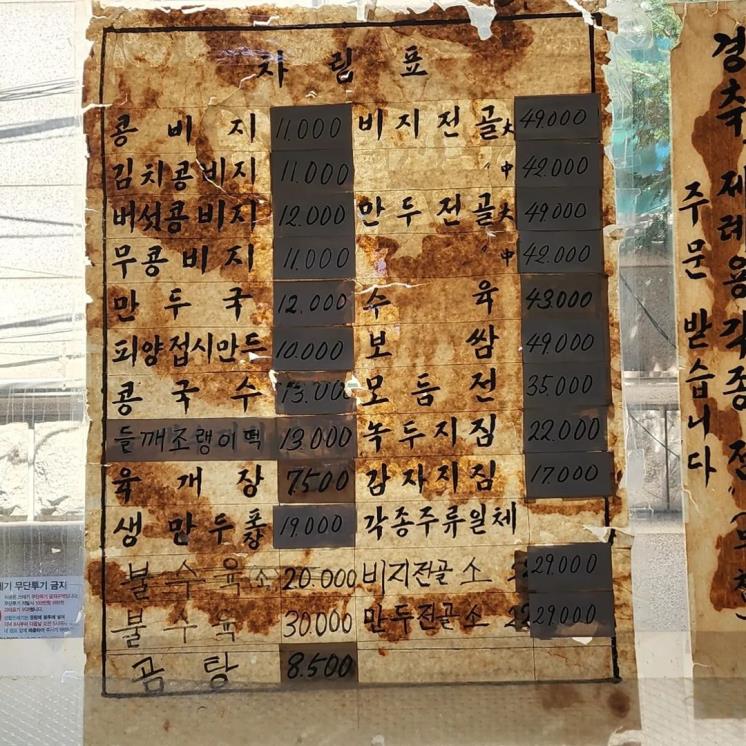 차림표
콩비지 11.000 비지전골大 49.000
김치콩비지 11.000 〃中 42.000
버섯콩비지 12.000 만두전골大 49.000
무콩비지 11.000 〃中 42.000
만두국 12.000 수육 43.000
피양접시만두 10.000 보쌈 49.000
콩국수 13.000 모듬전 35.000
들깨조랭이떡 13.000 녹두지짐 22.000
육개장 7.500 감자지짐 17.000
생만두포장 19.000 각종주류일체
불수육소 20.000 비지전골소 29.000
불수육 30.000 만두전골소 29.000
곰탕 8.500
경축, 제례용 각종 전
주문 받습니다
무단투기 금지